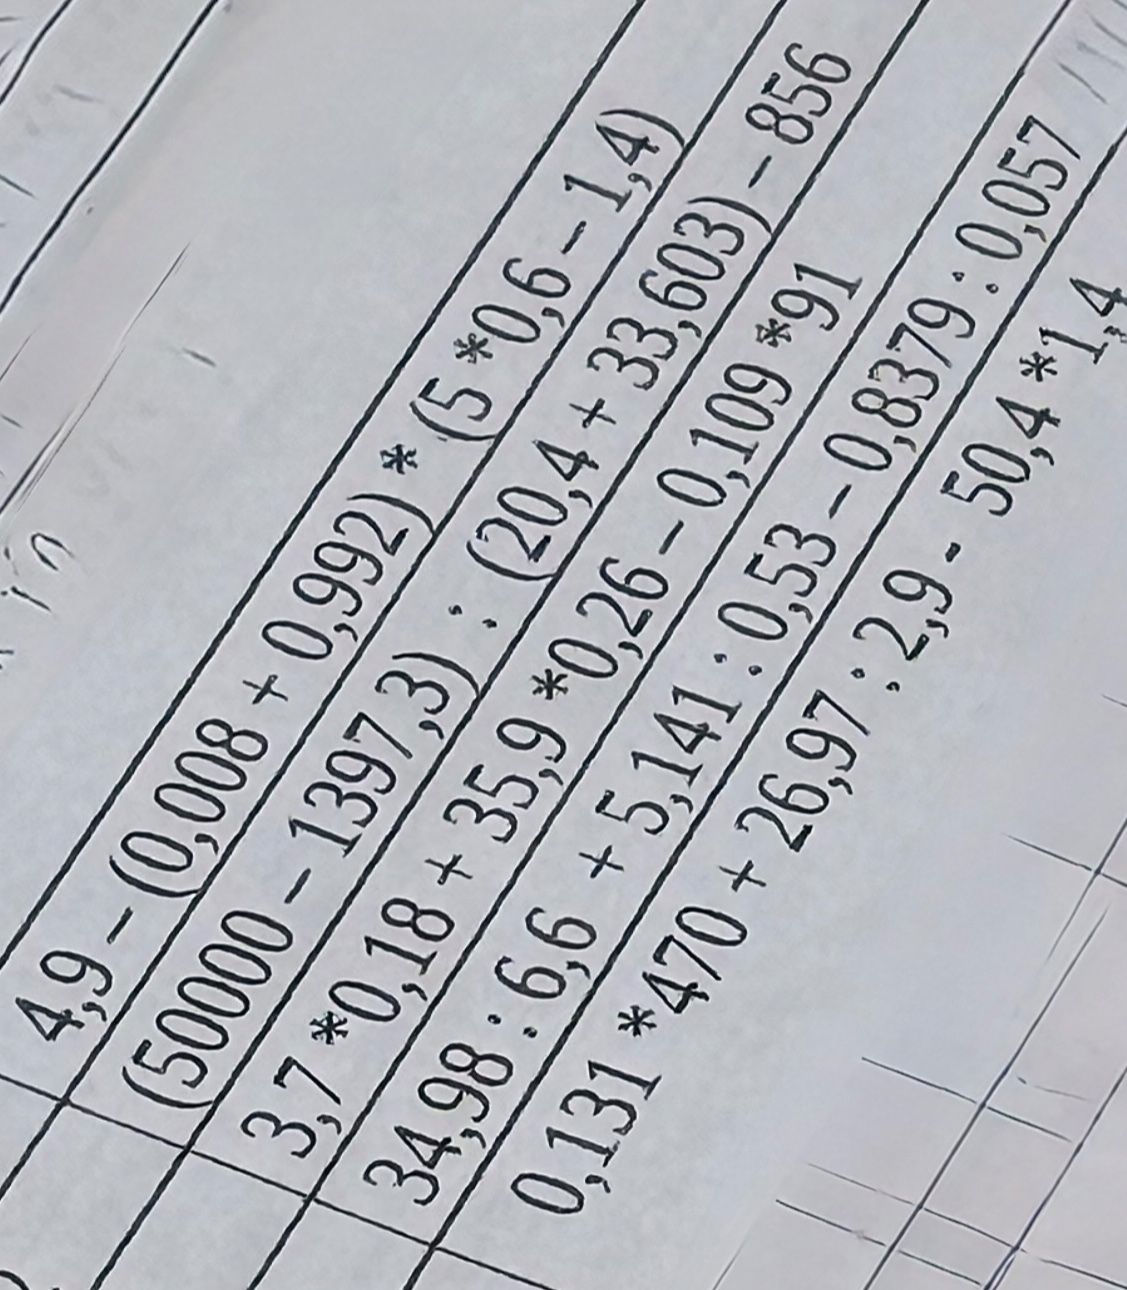 4,9 – (0,008 + 0,992) * (5 *0,6 – 1,4)
(50000 – 1397,3) : (20,4 + 33,603) – 856
3,7 *0,18 + 35,9 *0,26 – 0,109 *91
34,98 : 6,6 + 5,141 : 0,53 – 0,8379 : 0,057
0,131 *470 + 26,97 : 2,9 - 50,4 *1,4